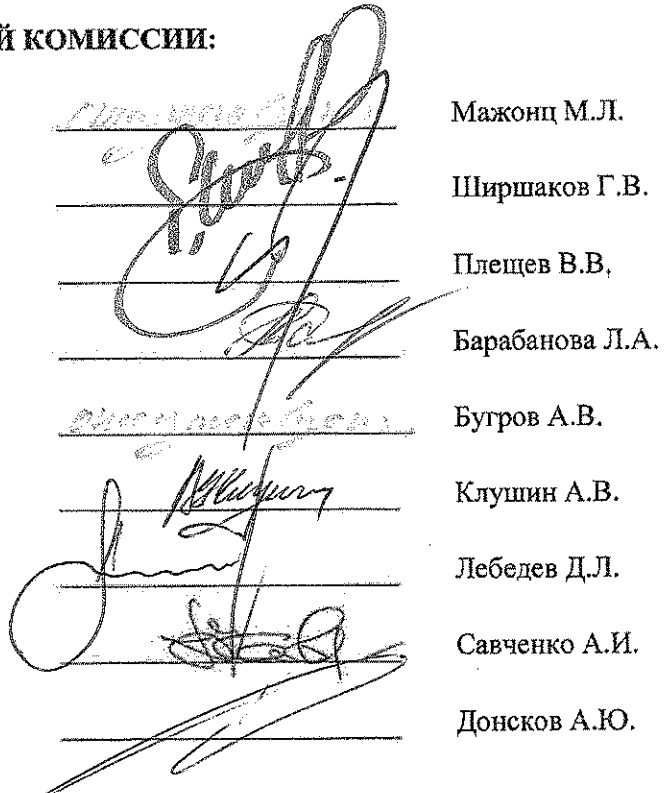 Й КОМИССИИ:
Мажонц М.Л.
Ширшаков Г.В.
Плещев В.В.
Барабанова Л.А.
отсутствовал Бугров А.В.
Клушин А.В.
Лебедев Д.Л.
Савченко А.И.
Донсков А.Ю.